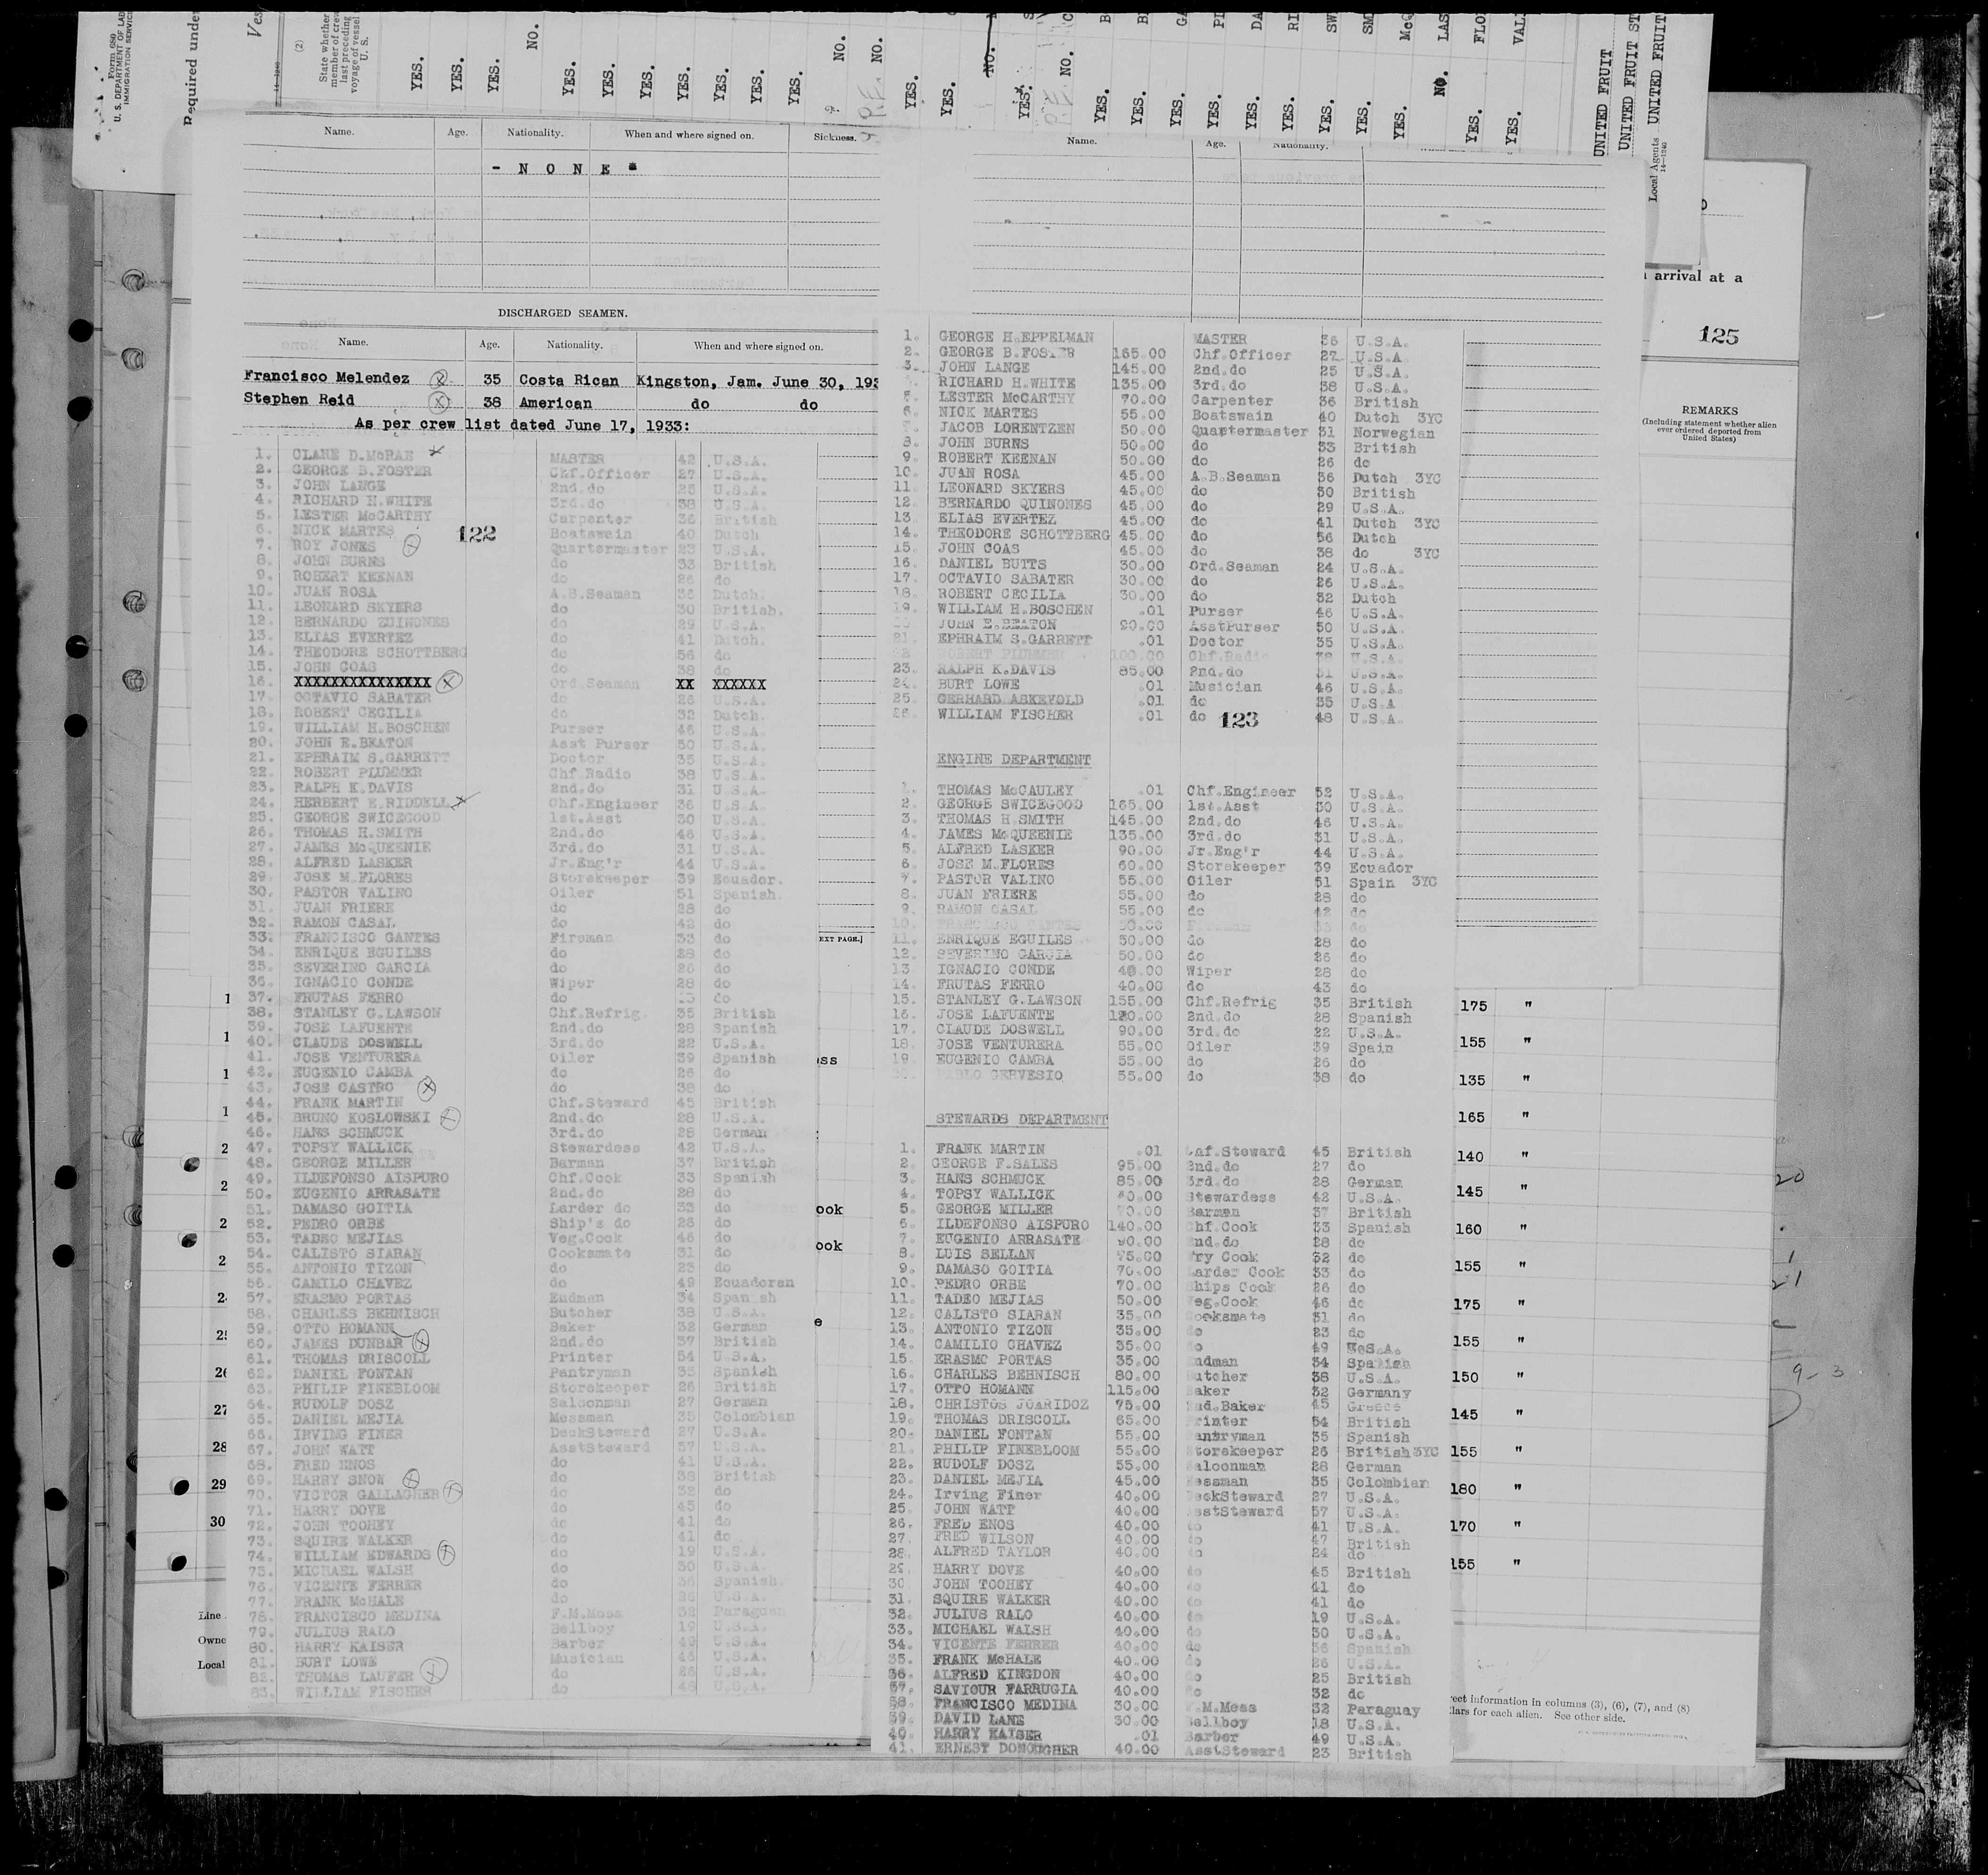 Form 680
U. S. DEPARTMENT OF LAB
IMMIGRATION SERVICE
Required under
Ves
(2)
State whether
member of crew
last preceding
voyage of vessel
U. S.
YES.
YES.
YES.
NO.
YES.
YES.
YES.
YES.
YES.
YES.
YES.
NO.
NO.
YES.
YES.
NO.
YES.
NO.
YES.
YES.
YES.
YES.
YES.
YES.
YES.
YES.
YES.
NO.
YES.
YES.
UNITED FRUIT
UNITED FRUIT ST
Local Agents UNITED FRUIT
14-1240
Name. Age. Nationality. When and where signed on. Sickness.
- N O N E -
Name. Age. Nationality.
arrival at a
125
REMARKS
(Including statement whether alien
ever ordered deported from
United States)
DISCHARGED SEAMEN.
Name. Age. Nationality. When and where signed on.
Francisco Melendez 35 Costa Rican Kingston, Jam. June 30, 193
Stephen Reid 38 American do do
As per crew list dated June 17, 1933:
1. CLANE D.McRAE MASTER 42 U.S.A.
2. GEORGE B.FOSTER Chf.Officer 27 U.S.A.
3. JOHN LANGE 2nd.do 25 U.S.A.
4. RICHARD H.WHITE 3rd.do 38 U.S.A.
5. LESTER McCARTHY Carpenter 36 British
6. NICK MARTES Boatswain 40 Dutch
122
7. ROY JONES Quartermaster 23 U.S.A.
8. JOHN BURNS do 33 British
9. ROBERT KEENAN do 26 do
10. JUAN ROSA A.B.Seaman 36 Dutch.
11. LEONARD SKYERS do 30 British.
12. BERNARDO QUINONES do 29 U.S.A.
13. ELIAS EVERTEZ do 41 Dutch.
14. THEODORE SCHOTTBERG do 56 do
15. JOHN COAS do 38 do
16. XXXXXXXXXXXXXXX Ord.Seaman XX XXXXXX
17. OCTAVIO SABATER do 26 U.S.A.
18. ROBERT CECILIA do 32 Dutch.
19. WILLIAM H.BOSCHEN Purser 46 U.S.A.
20. JOHN E.BEATON Asst Purser 50 U.S.A.
21. EPHRAIM S.GARRETT Doctor 35 U.S.A.
22. ROBERT PLUMMER Chf.Radio 38 U.S.A.
23. RALPH K.DAVIS 2nd.do 31 U.S.A.
24. HERBERT E.RIDDELL Chf.Engineer 36 U.S.A.
25. GEORGE SWICEGOOD 1st.Asst 30 U.S.A.
26. THOMAS H.SMITH 2nd.do 46 U.S.A.
27. JAMES McQUEENIE 3rd.do 31 U.S.A.
28. ALFRED LASKER Jr.Eng'r 44 U.S.A.
29. JOSE M.FLORES Storekeeper 39 Ecuador.
30. PASTOR VALINO Oiler 51 Spanish.
31. JUAN FRIERE do 28 do
32. RAMON CASAL do 42 do
33. FRANCISCO GANTES Fireman 33 do
34. ENRIQUE EGUILES do 28 do
35. SEVERINO GARCIA do 26 do
36. IGNACIO CONDE Wiper 28 do
37. FRUTAS FERRO do do
38. STANLEY G.LAWSON Chf.Refrig. 35 British
39. JOSE LAFUENTE 2nd.do 28 Spanish
40. CLAUDE DOSWELL 3rd.do 22 U.S.A.
41. JOSE VENTURERA Oiler 39 Spanish
42. EUGENIO CAMBA do 26 do
43. JOSE CASTRO do 38 do
44. FRANK MARTIN Chf.Steward 45 British
45. BRUNO KOSLOWSKI 2nd.do 28 U.S.A.
46. HANS SCHMUCK 3rd.do 28 German
47. TOPSY WALLICK Stewardess 42 U.S.A.
48. GEORGE MILLER Barman 37 British
49. ILDEFONSO AISPURO Chf.Cook 33 Spanish
50. EUGENIO ARRASATE 2nd.do 28 do
51. DAMASO GOITIA Larder do 33 do
52. PEDRO ORBE Ship's do 26 do
53. TADEO MEJIAS Veg.Cook 46 do
54. CALISTO SIARAN Cooksmate 31 do
55. ANTONIO TIZON do 23 do
56. CAMILO CHAVEZ do 49 Ecuadoran
57. ERASMO PORTAS Endman 34 Spanish
58. CHARLES BEHNISCH Butcher 38 U.S.A.
59. OTTO HOMANN Baker 32 German
60. JAMES DUNBAR 2nd.do 37 British
61. THOMAS DRISCOLL Printer 54 U.S.A.
62. DANIEL FONTAN Pantryman 35 Spanish
63. PHILIP FINEBLOOM Storekeeper 26 British
64. RUDOLF DOSZ Saloonman 27 German
65. DANIEL MEJIA Messman 35 Colombian
66. IRVING FINER DeckSteward 27 U.S.A.
67. JOHN WATT AsstSteward 57 U.S.A.
68. FRED ENOS do 41 U.S.A.
69. HARRY SNOW do 38 British
70. VICTOR GALLAGHER do 32 do
71. HARRY DOVE do 45 do
72. JOHN TOOHEY do 41 do
73. SQUIRE WALKER do 41 do
74. WILLIAM EDWARDS do 19 U.S.A.
75. MICHAEL WALSH do 30 U.S.A.
76. VICENTE FERRER do 36 Spanish.
77. FRANK McHALE do 26 U.S.A.
78. FRANCISCO MEDINA F.M.Mess 32 Paraguan
79. JULIUS RALO Bellboy 19 U.S.A.
80. HARRY KAISER Barber 49 U.S.A.
81. BURT LOWE Musician 46 U.S.A.
82. THOMAS LAUFER do 26 U.S.A.
83. WILLIAM FISCHER do 48 U.S.A.
1. GEORGE H.EPPELMAN MASTER 36 U.S.A.
2. GEORGE B.FOSTER 165.00 Chf.Officer 27 U.S.A.
3. JOHN LANGE 145.00 2nd.do 25 U.S.A.
RICHARD H.WHITE 135.00 3rd.do 38 U.S.A.
5. LESTER McCARTHY 70.00 Carpenter 36 British
6. NICK MARTES 55.00 Boatswain 40 Dutch 3YC
7. JACOB LORENTZEN 50.00 Quartermaster 31 Norwegian
8. JOHN BURNS 50.00 do 33 British
9. ROBERT KEENAN 50.00 do 26 do
10. JUAN ROSA 45.00 A.B.Seaman 36 Dutch 3YC
11. LEONARD SKYERS 45.00 do 30 British
12. BERNARDO QUINONES 45.00 do 29 U.S.A.
13. ELIAS EVERTEZ 45.00 do 41 Dutch 3YC
14. THEODORE SCHOTTBERG 45.00 do 56 Dutch
15. JOHN COAS 45.00 do 38 do 3YC
16. DANIEL BUTTS 30.00 Ord.Seaman 24 U.S.A.
17. OCTAVIO SABATER 30.00 do 26 U.S.A.
18. ROBERT CECILIA 30.00 do 32 Dutch
19. WILLIAM H.BOSCHEN .01 Purser 46 U.S.A.
JOHN E.BEATON 90.00 AsstPurser 50 U.S.A.
21. EPHRAIM S.GARRETT .01 Doctor 35 U.S.A.
22. ROBERT PLUMMER 100.00 Chf.Radio 38 U.S.A.
23. RALPH K.DAVIS 85.00 2nd.do 31 U.S.A.
24. BURT LOWE .01 Musician 46 U.S.A.
25 GERHARD ASKEVOLD .01 do 35 U.S.A
26. WILLIAM FISCHER .01 do 48 U.S.A.
123
ENGINE DEPARTMENT
1. THOMAS McCAULEY .01 Chf.Engineer 52 U.S.A.
2. GEORGE SWICEGOOD 165.00 1st.Asst 30 U.S.A.
3. THOMAS H.SMITH 145.00 2nd.do 46 U.S.A.
4. JAMES McQUEENIE 135.00 3rd.do 31 U.S.A.
5. ALFRED LASKER 90.00 Jr.Eng'r 44 U.S.A.
6. JOSE M.FLORES 60.00 Storekeeper 39 Ecuador
7. PASTOR VALINO 55.00 Oiler 51 Spain 3YC
8. JUAN FRIERE 55.00 do 28 do
9. RAMON CASAL 55.00 do 42 do
10. FRANCISCO GANTES 50.00 Fireman 33 do
11. ENRIQUE EGUILES 50.00 do 28 do
12. SEVERINO GARCIA 50.00 do 26 do
13 IGNACIO CONDE 40.00 Wiper 28 do
14. FRUTAS FERRO 40.00 do 43 do
15. STANLEY G.LAWSON 155.00 Chf.Refrig 35 British
16. JOSE LAFUENTE 120.00 2nd.do 28 Spanish
17. CLAUDE DOSWELL 90.00 3rd.do 22 U.S.A.
18. JOSE VENTURERA 55.00 Oiler 39 Spain
19. EUGENIO CAMBA 55.00 do 26 do
PABLO GERVESIO 55.00 do 38 do
STEWARDS DEPARTMENT
1. FRANK MARTIN .01 Steward 45 British
2. GEORGE F.SALES 95.00 2nd.do 27 do
3. HANS SCHMUCK 85.00 3rd.do 28 German
4. TOPSY WALLICK Stewardess 42 U.S.A.
5. GEORGE MILLER 70.00 Barman 37 British
6. ILDEFONSO AISPURO 140.00 Chf.Cook 33 Spanish
7. EUGENIO ARRASATE 90.00 2nd.do 28 do
8. LUIS SELLAN 75.00 Fry Cook 32 do
9. DAMASO GOITIA 70.00 Larder Cook 33 do
10. PEDRO ORBE 70.00 Ships Cook 26 do
11. TADEO MEJIAS 50.00 Veg.Cook 46 do
12. CALISTO SIARAN 35.00 Cooksmate 31 do
13. ANTONIO TIZON 35.00 do 23 do
14. CAMILIO CHAVEZ 35.00 do 49 U.S.A.
15. ERASMO PORTAS 35.00 Endman 34 Spanish
16. CHARLES BEHNISCH 80.00 Butcher 38 U.S.A.
17. OTTO HOMANN 115.00 Baker 32 Germany
18. CHRISTOS JOARIDOZ 75.00 2nd.Baker 45 Greece
19. THOMAS DRISCOLL 65.00 Printer 54 British
20. DANIEL FONTAN 55.00 Pantryman 35 Spanish
21. PHILIP FINEBLOOM 55.00 Storekeeper 26 British 3YC
22. RUDOLF DOSZ 55.00 Saloonman 28 German
23. DANIEL MEJIA 45.00 Messman 35 Colombian
24. Irving Finer 40.00 DeckSteward 27 U.S.A.
25. JOHN WATT 40.00 AsstSteward 57 U.S.A.
26. FRED ENOS 40.00 do 41 U.S.A.
27. FRED WILSON 40.00 do 47 British
28. ALFRED TAYLOR 40.00 do 24 do
29. HARRY DOVE 40.00 do 45 British
30. JOHN TOOHEY 40.00 do 41 do
31. SQUIRE WALKER 40.00 do 41 do
32. JULIUS RALO 40.00 do 19 U.S.A.
33. MICHAEL WALSH 40.00 do 30 U.S.A.
34. VICENTE FERRER 40.00 do 36 Spanish
35. FRANK McHALE 40.00 do 26 U.S.A.
36. ALFRED KINGDON 40.00 do 25 British
37. SAVIOUR FARRUGIA 40.00 do 32 do
38. FRANCISCO MEDINA 30.00 F.M.Mess 32 Paraguay
39. DAVID LANE 30.00 Bellboy 18 U.S.A.
40. HARRY KAISER .01 Barber 49 U.S.A.
41. ERNEST DONOUGHER 40.00 AsstSteward 23 British
EXT PAGE.]
ook
ook
29
30
Line
Owne
Local
175 "
155 "
135 "
165 "
140 "
145 "
160 "
155 "
175 "
155 "
150 "
145 "
155 "
180 "
170 "
155 "
9-3
rect information in columns (3), (6), (7), and (8)
llars for each alien. See other side.